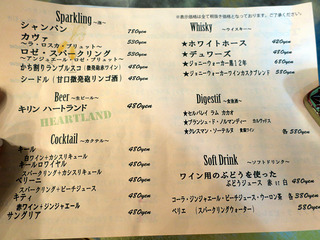 ※表示価格は全て税�き価格となっております。ご了承ください。
Sparkling ～泡～
シャンパン 780yen
カヴァ 530yen
～ラ・ロスカ・ブリュット～
ロゼ・スパークリング 550yen
～アンジュエール・ロゼ・ブリュット～
から割りランブルスコ（微発砲赤ワイン） 480yen
シードル（甘口微発砲リンゴ酒） 480yen
Beer ～生ビール～
キリン ハートランド 480yen
HEARTLAND
Cocktail ～カクテル～
キール 480yen
白ワイン+カシスリキュール
キールロワイヤル 480yen
スパークリング+カシスリキュール
ベリーニ 580yen
スパークリング+ピーチジュース
キティ 480yen
赤ワイン+ジンジャエール
サングリア 480yen
Whisky ～ウイスキー～
★ホワイトホース 420yen
★デュワーズ 480yen
★ジョニーウォーカー黒12年 680yen
★ジョニーウォーカーワインカスクブレンド 580yen
Digestif ～食後酒～
★セルパレイ ラム カカオ
★ブラッシュ・ド・ノルマンディー カルヴァドス
★クレスマン・ソーテルヌ 貴腐ワイン 各 580yen
Soft Drink ～ソフトドリンク～
ワイン用のぶどうを使った
ぶどうジュース 赤 or 白 480yen
コーラ・ジンジャエール・ピーチジュース・ウーロン茶 各 380yen
ペリエ （スパークリングウォーター） 580yen